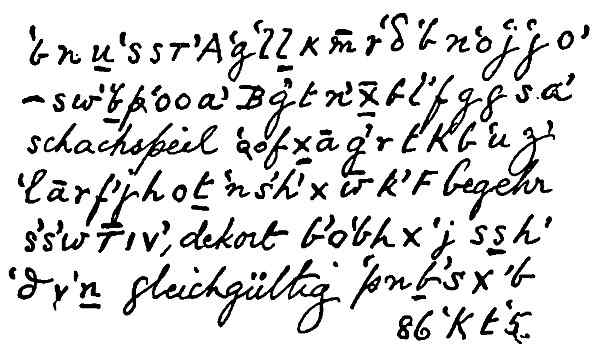 'b n u 's s T' A 'g 'l l K m̄ r 'δ 'b n 'o 'j 'g o'
– s w' 'b p' 'o o a' B g' t n' x̄ b l' f g g s. a'
schachspeil 'a o f x ā g' r t K b 'u z'
'l ā r f' j h o t 'n s' h' x w̄ k' F begehr
s' s' w T̄ I V', dekort b' o' b h x 'j s s h'
'd y 'n gleichgültig 'p n b' s x 'b
86 'K t '5.